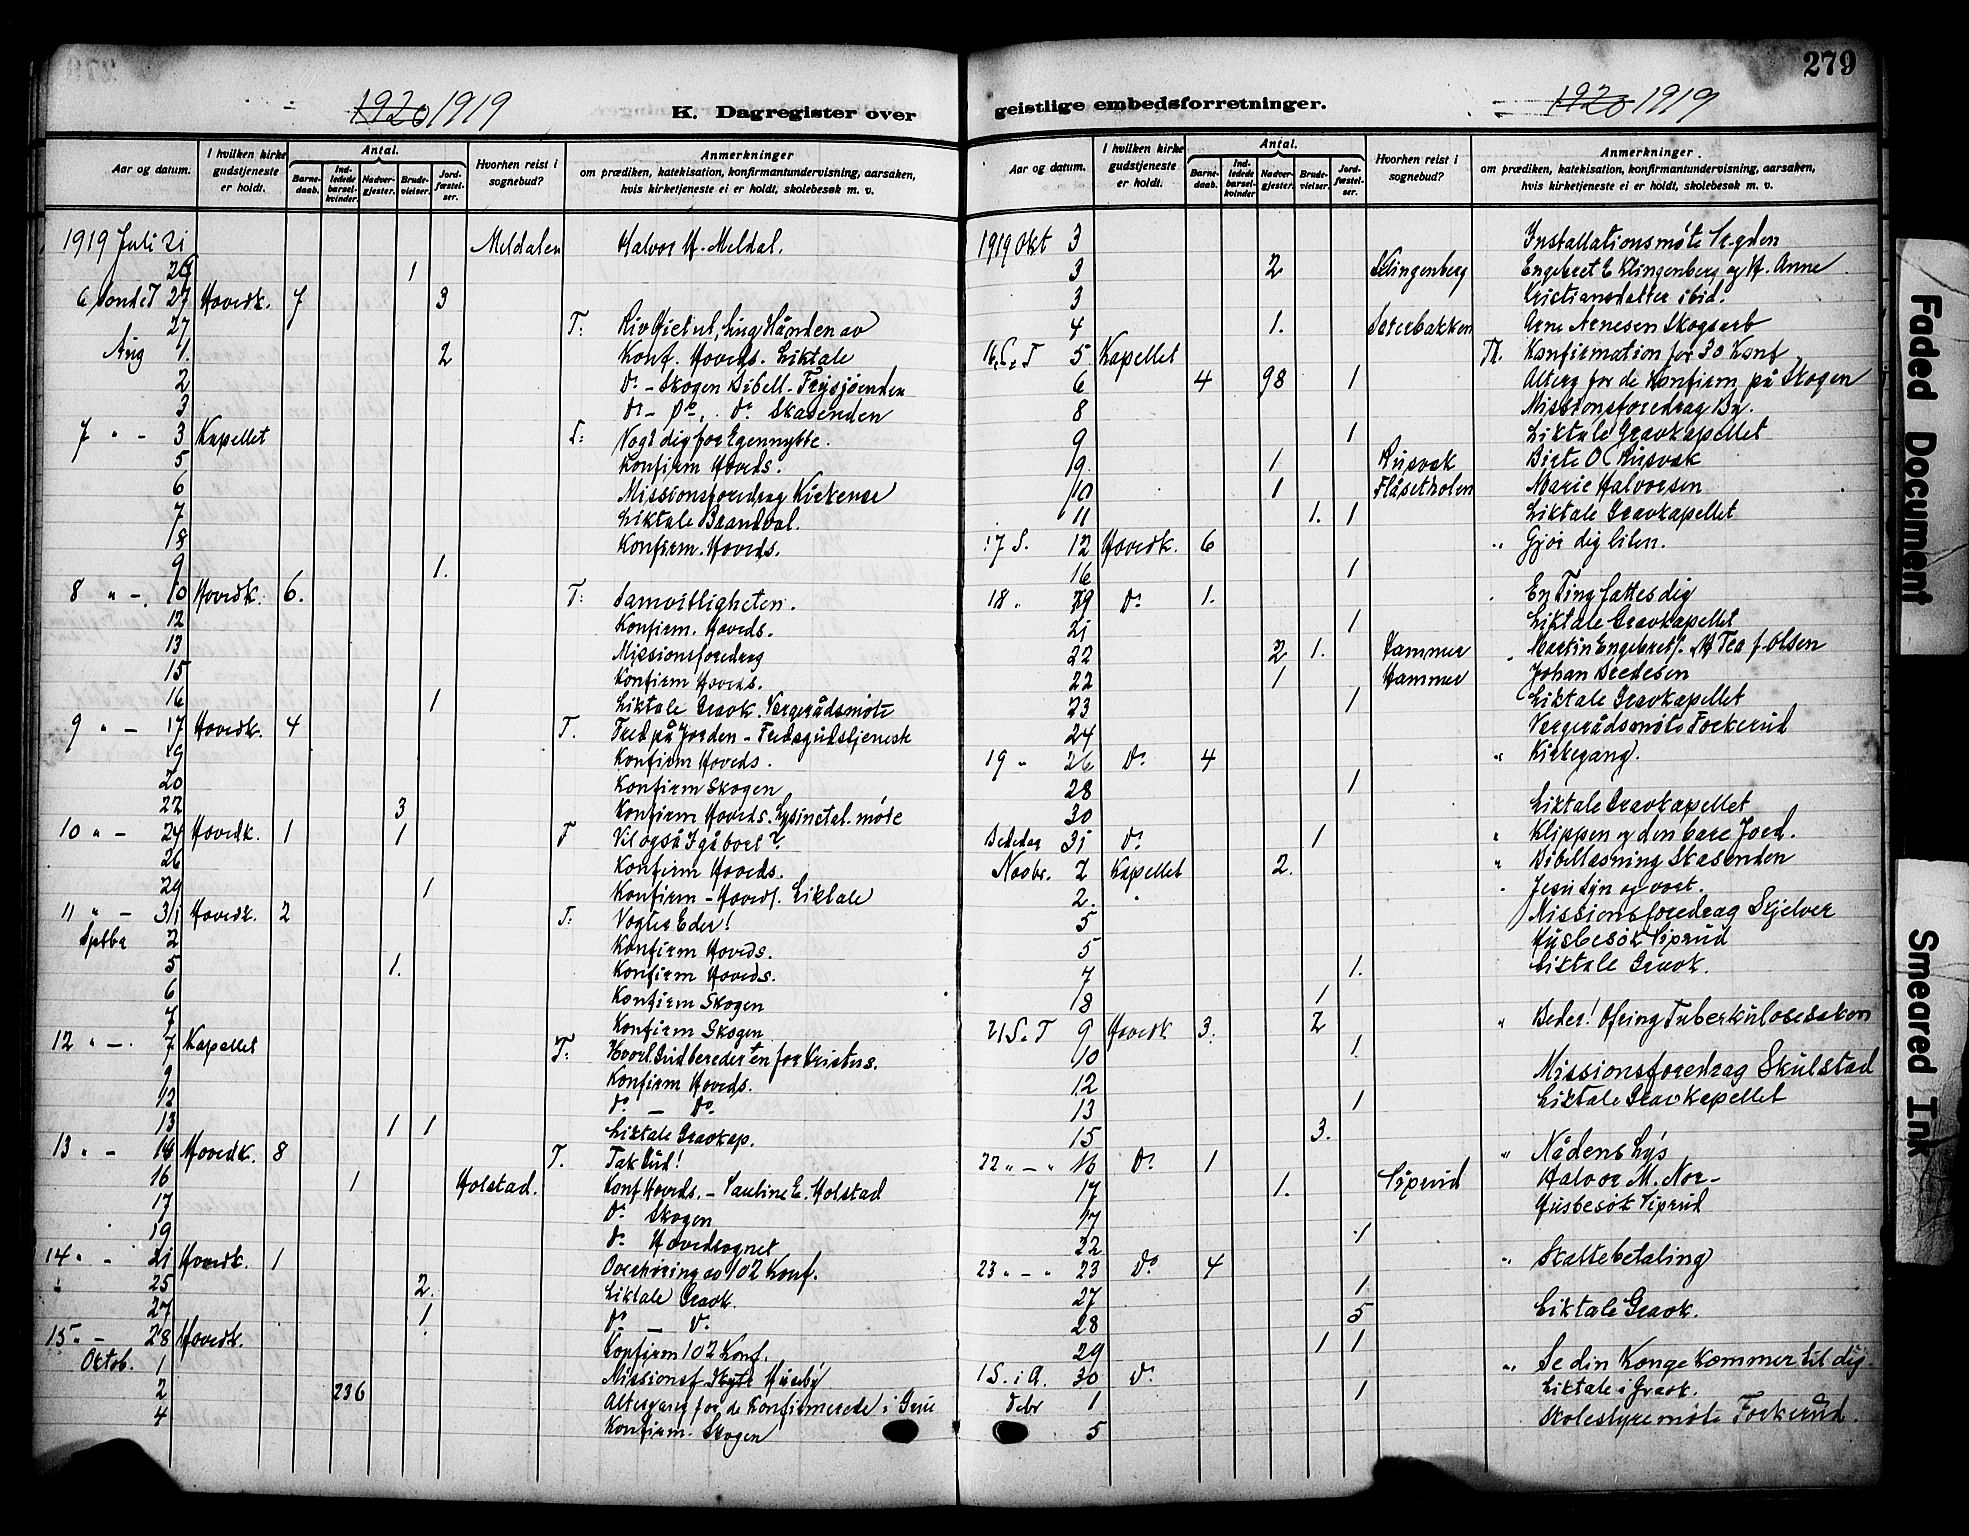 279
1920 1919
K. Dagregister over
Aar og datum.
I hvilken kirke gudstjeneste er holdt.
Antal.
Barne-daab.
Ind-ledede barsel-kvinder.
Nadver-gjester.
Brude-vielser.
Jord-fæstel-ser.
Hvorhen reist i sognebud?
Anmerkninger
om prædiken, katekisation, konfirmantundervisning, aarsaken,
hvis kirketjeneste ei er holdt, skolebesøk m. v.
1919 Juli 21 Meldalen Halvor H. Meldal.
26 1
6 Sond e T 27 Hovedk. 7 3
27 T: Riv Øiet ut, hug Hånden av
Aug 1. 2 Konf. Hoveds. Liktale
2 Do - Skogen Bibell - Frysjøenden
3 Do - Do. Do Skasenden
7 " - 3 Kapellet T: Vogt dig for Egennytte.
5 Konfirm Hoveds.
6 Missionsforedrag Kirkenær
7 Liktale Brandval.
8 Konfirm. Hoveds.
9 1.
8 " - 10 Hovedk. 6. T: Samvittigheten.
12 Konfirm. Hoveds.
13 Missionsforedrag
15 Konfirm Hoveds.
16 1 Liktale Gravk. Vergerådsmøte
9 " - 17 Hovedk. 4 T. Fred på Jorden - Fredsgudstjeneste
19 Konfirm Hoveds.
20 Konfirm Skogen
22 3 Konfirm Hoveds. møte
10 " - 24 Hovedk. 1 1 T Vil også I gå bort?
26 Konfirm Hoveds.
29 1 Konfirm - Hoveds. Liktale
11 " - 31 Hovedk. 2 T: Vogter Eder!
Septbr 2 Konfirm Hoveds.
5 1. Konfirm Hoveds.
6 Konfirm Skogen
7 Konfirm Skogen
12 " - 7 Kapellet T: Hvort Gud bereder en for Kristus.
9 Konfirm Hoveds.
12 Do - Do
13 1 1 Liktale Gravkap.
13 " - 14 Hovedk. 8 T. Tak Gud!
16 1 Holstad. Konf Hoveds. - Pauline E. Holstad
17 Do Skogen
19 Do Hovedsognet
14 " - 21 Hovedk. 1 Overhøring av 102 Konf.
" 25 2. Liktale Gravk.
27 1 Do - Do
15 " - 28 Hovedk. Konfirm 102 Konf.
Oktob. 1 Missionsf Huseby
2 236 Altergang for de Konfirmerede i Grue
4 Konfirm. Skogen
geistlige embedsforretninger.
1920 1919
Aar og datum.
I hvilken kirke gudstjeneste er holdt.
Antal.
Barne-daab.
Ind-ledede barsel-kvinder.
Nadver-gjester.
Brude-vielser.
Jord-fæstel-ser.
Hvorhen reist i sognebud?
Anmerkninger.
om prædiken, katekisation, konfirmantundervisning, aarsaken,
hvis kirketjeneste ei er holdt, skolebesøk m. v.
1919 Okt 3 Installationsmøte
3 2 Klingenberg Engebret E Klingenberg og H. Anne
3 Kristiansdatter ibid.
4 1. Sæterbakken Arne Arnesen Skogsarb
16. S. e T 5 Kapellet Konfirmation for 30 Konf
6 4 98 1 Alterg for de Konfirm på Skogen
8 Missionsforedrag Br.
9 1 Liktale Gravkapellet
9. 1 Husvæk Birte O Husvæk
10 1 Flåsetholen Marie Halvorsen
11 1. 1 Liktale Gravkapellet
17 S. 12 Hovedk. 6 " Gjør dig liten.
16 1
18 " 19 Do 1. En Ting fattes dig
21 1 Liktale Gravkapellet
22 2 1. Hammer Martin Engebrets. Tea f. Olsen
22 1 Hammer Johan Bredesen
23 1 Liktale Gravkapellet
24 Vergerådsmøte Forkerud
19 " 26 Do 4 " Kirkegang.
28 1
30 Liktale Gravkapellet
Bededag 31 Do 1 " Klippen og den bare Jord.
Novbr. 2 Kapellet 2. " Bibellæsning Skasenden
2. " Jesu Syn og vort.
5 Missionsforedrag Skjelver
5 Husbesøk Siprud
7 1. Liktale Gravk.
8 1
21 S. e T 9 Hovedk 3. 2 " Beder! Ofring Tuberkulosesaken
10 1.
12 Missionsforedrag Skulstad
13 1 Liktale Gravkapellet
15 3.
22 " - " 16 Do 1 " Nådens Lys
17 1. Siprud Halvor M. Nor-
17 Husbesøk Siprud
22 1
23 " - " 23 Do 4 " Skattebetaling
27 1
28 5 Liktale Gravk.
29 1 1
1 S. i A. 30 Do " Se din Konge kommer til dig.
Debr 1 1 Liktale i Gravk.
5 Skolestyremøte Forkerud.
Faded Document
Smeared Ink